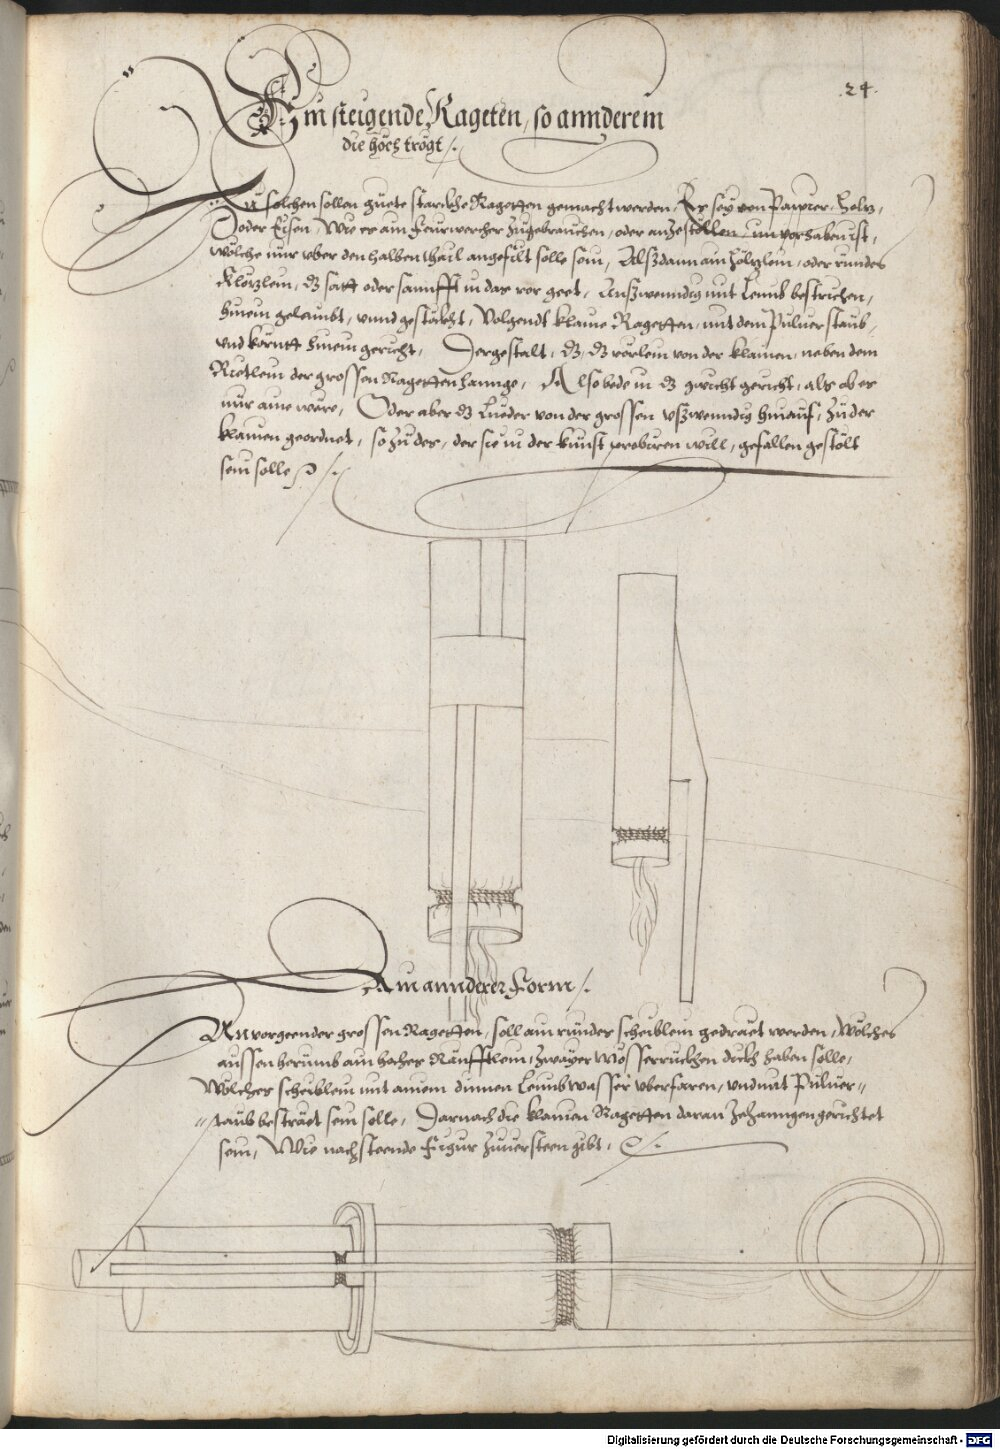 .24.
Ein steigende Rageten, so annderem
die höch trögt /.
Zu solchen sollen guete starckhe Ragetten gemacht werden, Er sey von Pappier, Holtz,
Oder Eisen, Wie er am Feurwercher zugebrauchen, oder anzestöllen, im vorhaben ist,
wölche nur uber den halben thail angefilt solle sein, Alßdann ain hölzlein, oder rundes
Klözlein, dz satt oder sannfft in das ror geet, Außwenndig mit Leimb bestrichen,
hinein gelaimbt, vnnd gestöckht, Volgendt klaine Ragetten, mit dem Puluer staub,
vnd körntt hinein gericht, Dergestalt, dz, dz rörlein von der klainen, neben dem
Rietlein der grossen Ragetten hannge, Also bede in dz gwicht gericht, als ob er
nur aine were, Oder aber dz Lueder von der grossen ußwenndig hinauf, zu der
klainen geordnet, so zu des, der sie in der kunst probiren will, gefallen gestölt
sein solle /.
Ain annderer Form /.
An vorgeender grossen Ragetten, soll ain runder scheiblein gedräet werden, Wölches
aussen herumb ain hoches Ränfftlein, zwayer Mösserruckhen dickh haben solle,
Wölches scheiblein mit ainem dinnen Leimbwasser uberfaren, vnd mit Puluer//
//staub besträet sein solle, Darnach die klainen Ragetten daran zehanngen gerichtet
sein, Wie nachsteende Figur zuuersteen gibt, /.
Digitalisierung gefördert durch die Deutsche Forschungsgemeinschaft - DFG